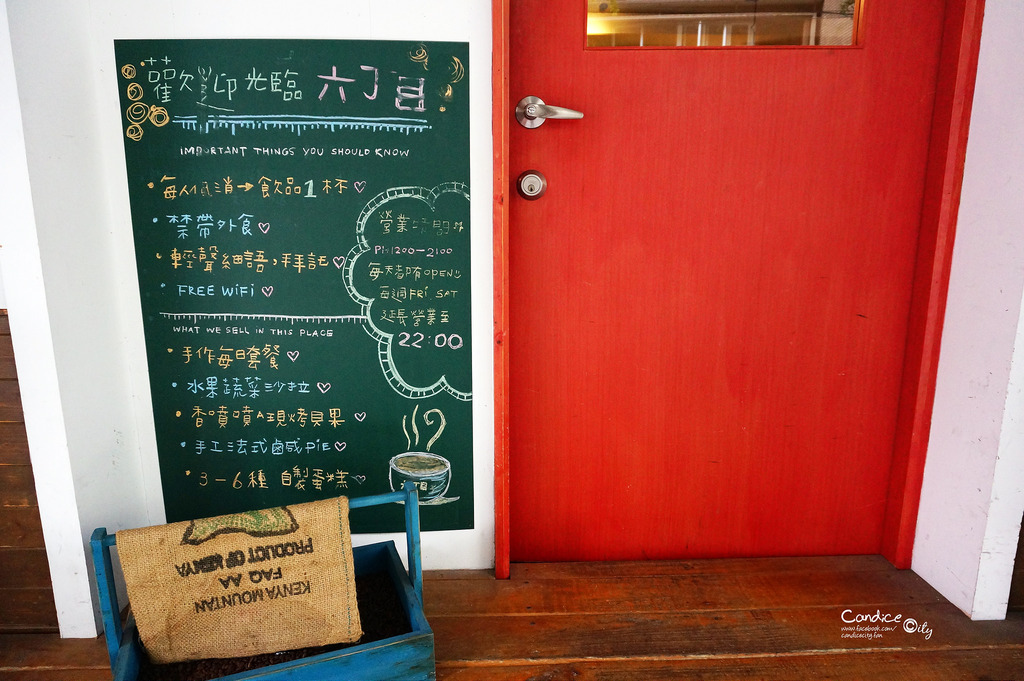 歡迎光臨 六丁目
IMPORTANT THINGS YOU SHOULD KNOW
• 每人低消→飲品1杯♡
• 禁帶外食♡
• 輕聲細語,拜託♡
• FREE WiFi ♡
營業時間
PM1200-2100
每天都有OPEN
每週FRI SAT
延長營業至
22:00
WHAT WE SELL IN THIS PLACE
• 手作每日套餐♡
• 水果蔬菜沙拉♡
• 香噴噴A現烤貝果♡
• 手工法式鹹PIE♡
• 3-6種 自製蛋糕♡
六丁目
KENYA MOUNTAN
FAQ AA
PRODUCT OF KENYA
Candice City
www.facebook.com/
candicecity.fan